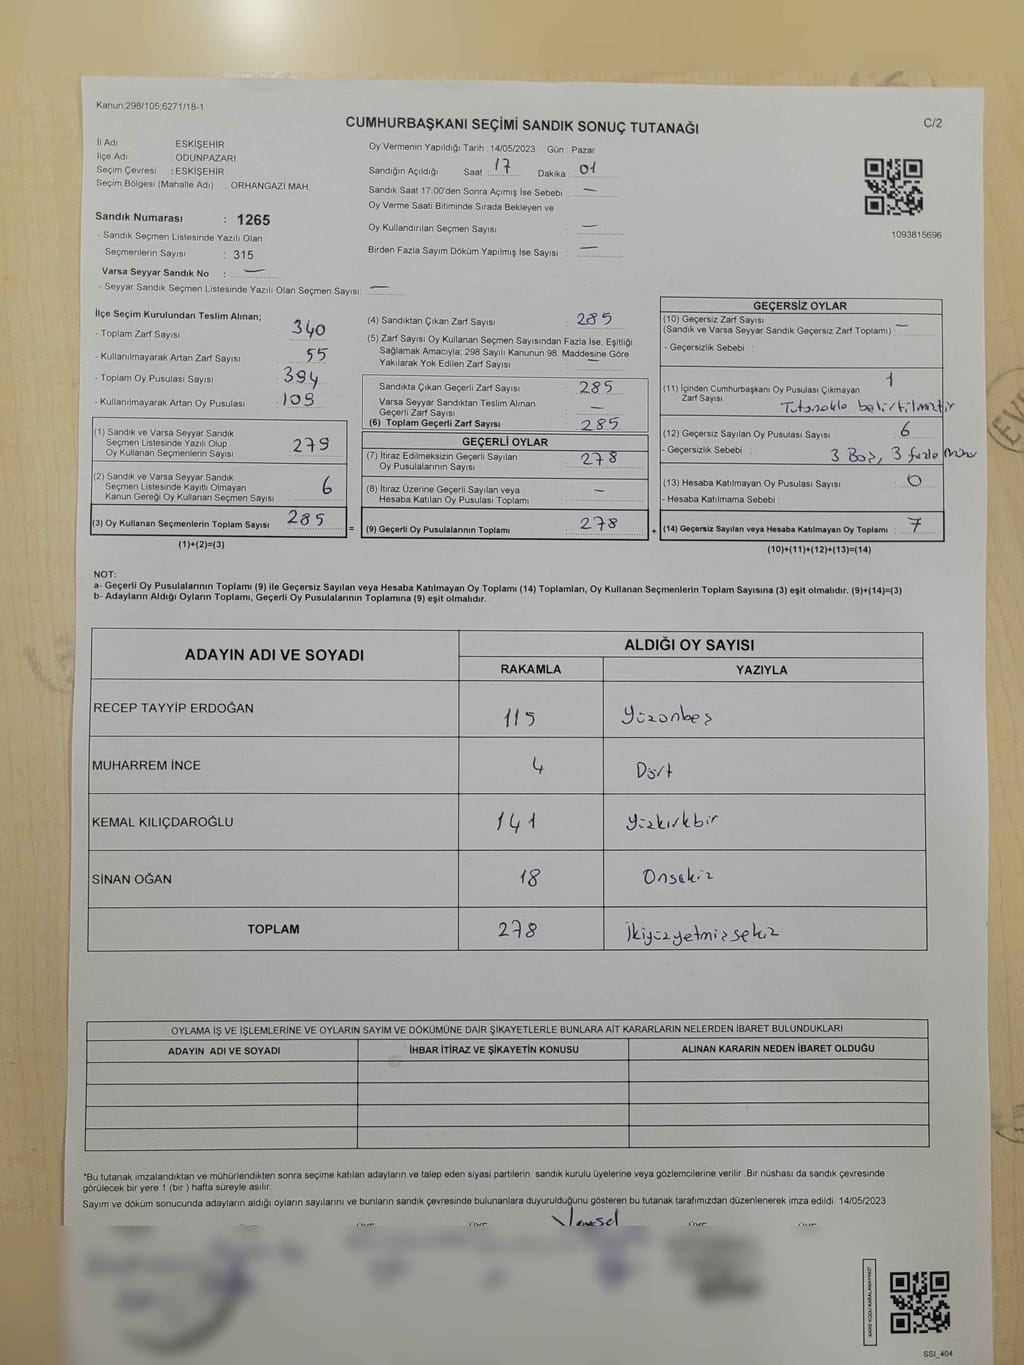 Kanun:298/105;6271/18-1
CUMHURBAŞKANI SEÇİMİ SANDIK SONUÇ TUTANAĞI
C/2
İl Adı ESKİŞEHİR
İlçe Adı ODUNPAZARI
Seçim Çevresi : ESKİŞEHİR
Seçim Bölgesi (Mahalle Adı) : ORHANGAZİ MAH.
Sandık Numarası : 1265
- Sandık Seçmen Listesinde Yazılı Olan
Seçmenlerin Sayısı : 315
Varsa Seyyar Sandık No : —
- Seyyar Sandık Seçmen Listesinde Yazılı Olan Seçmen Sayısı: —
Oy Vermenin Yapıldığı Tarih : 14/05/2023 Gün : Pazar
Sandığın Açıldığı Saat : 17 Dakika : 01
Sandık Saat 17:00'den Sonra Açımış İse Sebebi : —
Oy Verme Saati Bitiminde Sırada Bekleyen ve
Oy Kullandırılan Seçmen Sayısı : —
Birden Fazla Sayım Döküm Yapılmış İse Sayısı : —
1093815696
İlçe Seçim Kurulundan Teslim Alınan;
- Toplam Zarf Sayısı : 340
- Kullanılmayarak Artan Zarf Sayısı : 55
- Toplam Oy Pusulası Sayısı : 394
- Kullanılmayarak Artan Oy Pusulası : 109
(1) Sandık ve Varsa Seyyar Sandık
Seçmen Listesinde Yazılı Olup
Oy Kullanan Seçmenlerin Sayısı : 279
(2) Sandık ve Varsa Seyyar Sandık
Seçmen Listesinde Kayıtlı Olmayan
Kanun Gereği Oy Kullanan Seçmen Sayısı : 6
(3) Oy Kullanan Seçmenlerin Toplam Sayısı : 285
(1)+(2)=(3)
(4) Sandıktan Çıkan Zarf Sayısı : 285
(5) Zarf Sayısı Oy Kullanan Seçmen Sayısından Fazla İse, Eşitliği
Sağlamak Amacıyla; 298 Sayılı Kanunun 98. Maddesine Göre
Yakılarak Yok Edilen Zarf Sayısı : —
Sandıkta Çıkan Geçerli Zarf Sayısı : 285
Varsa Seyyar Sandıktan Teslim Alınan
Geçerli Zarf Sayısı : —
(6) Toplam Geçerli Zarf Sayısı : 285
GEÇERLİ OYLAR
(7) İtiraz Edilmeksizin Geçerli Sayılan
Oy Pusulalarının Sayısı : 278
(8) İtiraz Üzerine Geçerli Sayılan veya
Hesaba Katılan Oy Pusulası Toplamı : —
= (9) Geçerli Oy Pusulalarının Toplamı : 278
GEÇERSİZ OYLAR
(10) Geçersiz Zarf Sayısı
(Sandık ve Varsa Seyyar Sandık Geçersiz Zarf Toplamı) : —
- Geçersizlik Sebebi :
(11) İçinden Cumhurbaşkanı Oy Pusulası Çıkmayan
Zarf Sayısı : 1
Tutanakla belirtilmiştir
(12) Geçersiz Sayılan Oy Pusulası Sayısı : 6
- Geçersizlik Sebebi : 3 Boş, 3 fazla mühür
(13) Hesaba Katılmayan Oy Pusulası Sayısı : 0
- Hesaba Katılmama Sebebi :
+ (14) Geçersiz Sayılan veya Hesaba Katılmayan Oy Toplamı : 7
(10)+(11)+(12)+(13)=(14)
NOT:
a- Geçerli Oy Pusulalarının Toplamı (9) ile Geçersiz Sayılan veya Hesaba Katılmayan Oy Toplamı (14) Toplamları, Oy Kullanan Seçmenlerin Toplam Sayısına (3) eşit olmalıdır. (9)+(14)=(3)
b- Adayların Aldığı Oyların Toplamı, Geçerli Oy Pusulalarının Toplamına (9) eşit olmalıdır.
ADAYIN ADI VE SOYADI ALDIĞI OY SAYISI
RAKAMLA YAZIYLA
RECEP TAYYİP ERDOĞAN 115 Yüzonbeş
MUHARREM İNCE 4 Dört
KEMAL KILIÇDAROĞLU 141 Yüzkırkbir
SİNAN OĞAN 18 Onsekiz
TOPLAM 278 İkiyüzyetmişsekiz
OYLAMA İŞ VE İŞLEMLERİNE VE OYLARIN SAYIM VE DÖKÜMÜNE DAİR ŞİKAYETLERLE BUNLARA AİT KARARLARIN NELERDEN İBARET BULUNDUKLARI
ADAYIN ADI VE SOYADI İHBAR İTİRAZ VE ŞİKAYETİN KONUSU ALINAN KARARIN NEDEN İBARET OLDUĞU
*Bu tutanak imzalandıktan ve mühürlendikten sonra seçime katılan adayların ve talep eden siyasi partilerin sandık kurulu üyelerine veya gözlemcilerine verilir .Bir nüshası da sandık çevresinde
görülecek bir yere 1 (bir ) hafta süreyle asılır.
Sayım ve döküm sonucunda adayların aldığı oyların sayılarını ve bunların sandık çevresinde bulunanlara duyurulduğunu gösteren bu tutanak tarafımızdan düzenlenerek imza edildi. 14/05/2023
KARE KODU KARALAMAYINIZ!
SSI_404